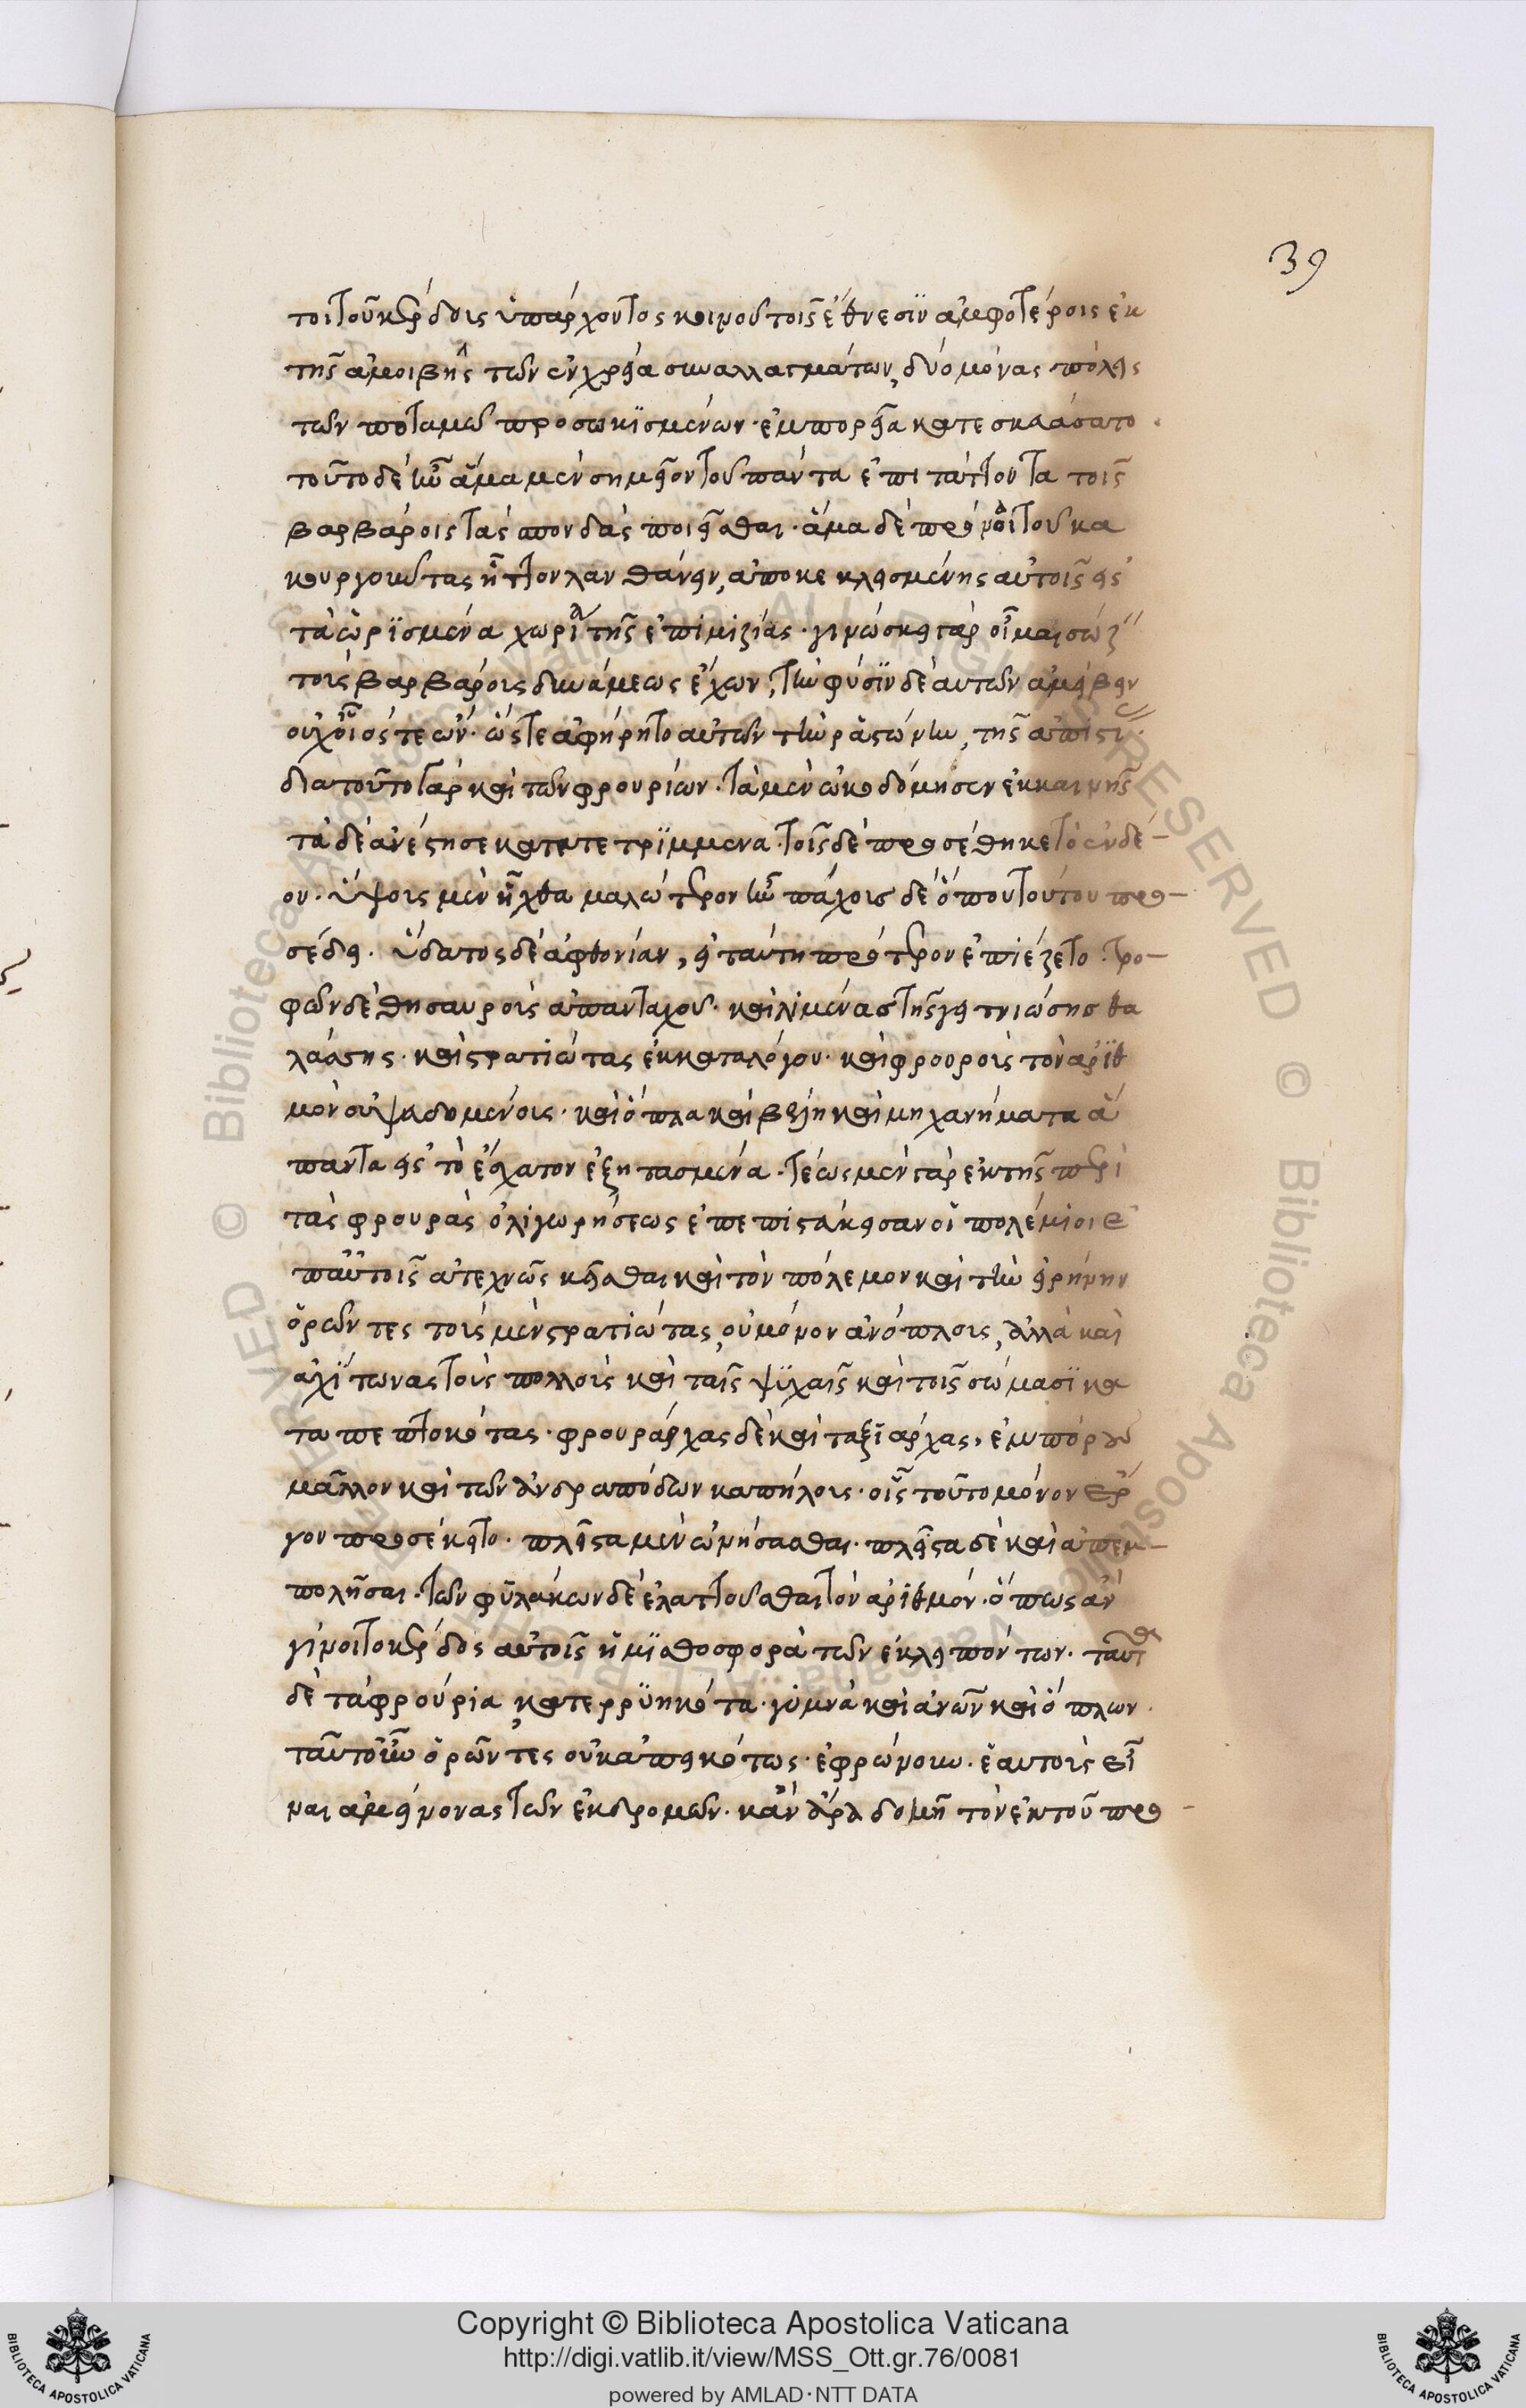 39
τοι τοῦ κέρδους ὑπάρχοντος κοινοῦ τοῖς ἔθνεσϊν ἀμφοτέροις ἐκ
τῆς ἀμοιβῆς τῶν ἐν χρεία συναλλαγμάτων, δύο μόνας πόλεις
τῶν ποταμῶ προσωκϊσμένων· ἐμπορεῖα κατεσκευάσατο·
τοῦτο δὲ ἦν ἅμα μὲν σημεῖον τοῦ πάντα ἐπιτάττοντα τοῖς
βαρβάροις τὰς σπονδὰς ποιεῖσθαι· ἅμα δὲ πρόνοι τοῦ κα
κουργοῦντας ἧττον λανθάνειν, ἀποκεκλεισμένης αὐτοῖς εἰς
τὰ ὡρϊσμένα χωρία τῆς ἐπιμιξίας· γινώσκει γὰρ οἶμαι
τοὺς βαρβάρους δυνάμεως ἔχων, τὴν φύσϊν δὲ αὐτῶν ἀμείβειν
οὐχ οἷός τε ὤν· ὥστε ἀφήρητο αὐτῶν τὴν ῥᾳστώνην, τῆς ἀπιστ
διατοῦτο γὰρ καὶ τῶν φρουρίων· τὰ μὲν ὠκοδόμησεν ἐκ καινῆς
τὰ δὲ ἀνέστησε κατατετρϊμμένα· τοῖς δὲ προσέθηκε τὸ ἐνδέ-
ον· ὕψους μὲν ἧ χθαμαλώτερον ἦν πάχους δὲ ὅπου τούτου προ-
σέδει· ὕδατος δὲ ἀφθονίαν, εἰ ταύτη πρότερον ἐπιέζετο· τρο-
φῶν δὲ θησαυροὺς ἁπανταχοῦ· καὶ λιμένας τῆς γειτνιώσης θα
λάσσης· καὶ στρατιώτας ἐκ καταλόγου· καὶ φρουροὺς τὸν ἀρϊθ
μὸν οὐ ψευδομένους· καὶ ὅπλα καὶ βέλη καὶ μηχανήματα ἅ
παντα εἰς τὸ ἔσχατον ἐξητασμένα· τέως μὲν γὰρ ἐκ τῆς περὶ
τὰς φρουρὰς ὀλιγωρήσεως ἐπεπιστεύκεισαν οἱ πολέμιοι ἐ
παὐτοῖς ἀτεχνῶς κεῖσθαι καὶ τὸν πόλεμον καὶ τὴν εἰρήνην
ὁρῶντες τοὺς μὲν στρατιώτας, οὐ μόνον ἀνόπλους, ἀλλὰ καὶ
ἀχίτωνας τοὺς πολλοὺς καὶ ταῖς ψϋχαῖς καὶ τοῖς σώμασϊ κα
ταπεπτοκότας· φρουράρχας δὲ καὶ ταξϊάρχας, ἐμπόρου
μᾶλλον καὶ τῶν ἀνδραπόδων καπήλους· οἷς τοῦτο μόνον ἔρ
γον προσέκειτο· πλεῖστα μὲν ὠνήσασθαι· πλεῖστα δὲ καὶ ἀπεμ-
πολῆσαι· τῶν φϋλάκων δὲ ἐλαττοῦσθαι τὸν ἀριθμόν· ὅπως ἂν
γίνοιτο κέρδος αὐτοῖς ἡ μϊσθοφορὰ τῶν ἐκλειπόντων· ταῦτα
δὲ τὰ φρούρια, κατερρϋηκότα· γϋμνὰ καὶ ἀνδρῶν καὶ ὅπλων·
ταῦτ οὖν ὁρῶντες οὐκ ἀπεικότως· ἐφρώνουν· ἑαυτοὺς εἶ
ναι ἀμείνονας τῶν ἐκδρομῶν· κἂν ἄρα δομῆ τὸν ἐκ τοῦ προ-
Copyright © Biblioteca Apostolica Vaticana
http://digi.vatlib.it/view/MSS_Ott.gr.76/0081
powered by AMLAD·NTT DATA